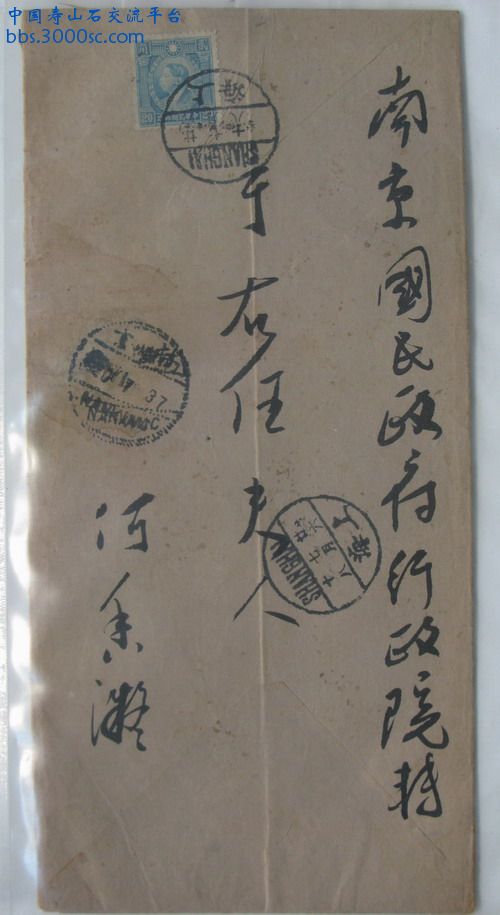 中国寿山石交流平台
bbs.3000sc.com
南京國民政府行政院轉
于右任夫人
何香凝
上海
SHANGHAI
上海
SHANGHAI
20
37